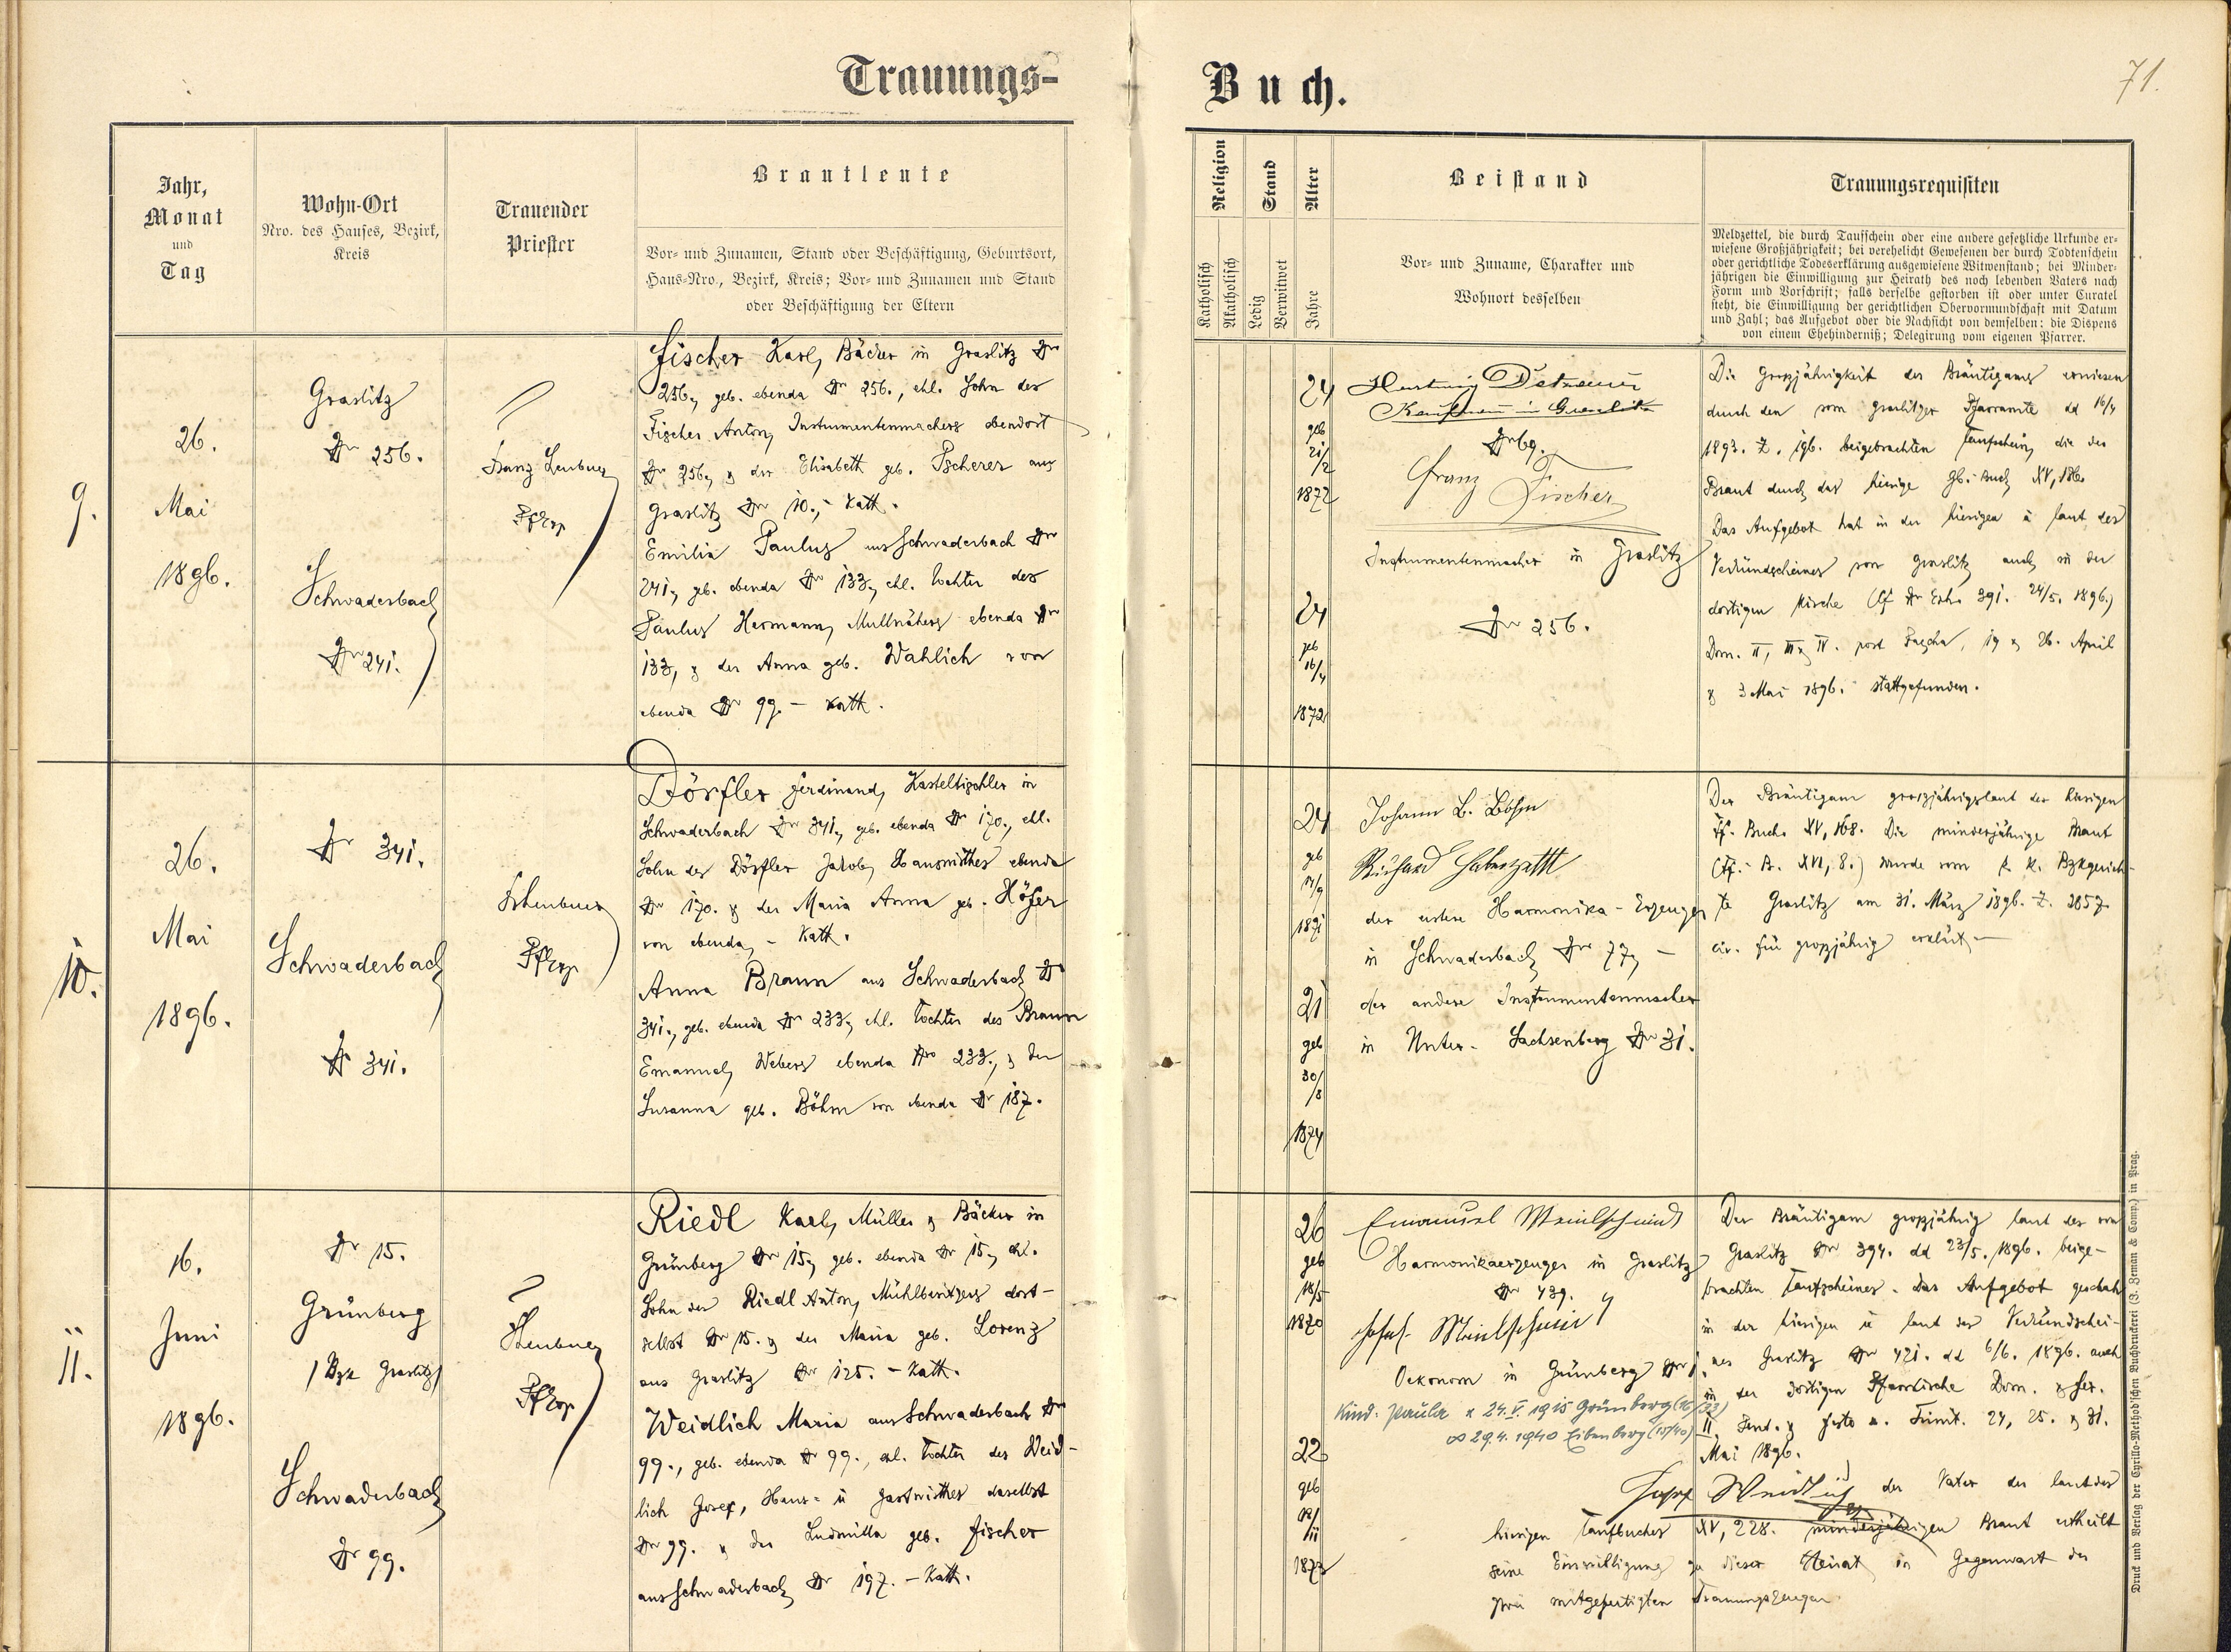 Trauungs-
Buch.
71.
Jahr,
Monat
und
Tag
Wohn-Ort
Nro. des Hauses, Bezirk,
Kreis
Trauender
Priester
Brautleute
Vor- und Zunamen, Stand oder Beschäftigung, Geburtsort,
Haus-Nro., Bezirk, Kreis; Vor- und Zunamen und Stand
oder Beschäftigung der Eltern
Religion
Katholisch
Akatholisch
Stand
Ledig
Verwitwet
Alter
Jahre
Beistand
Vor- und Zuname, Charakter und
Wohnort desselben
Trauungsrequisiten
Meldzettel, die durch Taufschein oder eine andere gesetzliche Urkunde er-
wiesene Großjährigkeit; bei verehelicht Gewesenen der durch Todtenschein
oder gerichtliche Todeserklärung ausgewiesene Witwenstand; bei Minder-
jährigen die Einwilligung zur Heirath des noch lebenden Vaters nach
Form und Vorschrift; falls derselbe gestorben ist oder unter Curatel
steht, die Einwilligung der gerichtlichen Obervormundschaft mit Datum
und Zahl; das Aufgebot oder die Nachsicht von demselben: die Dispens
von einem Ehehinderniß; Delegirung vom eigenen Pfarrer.
9.
26.
Mai
1896.
Graslitz
Nr 256.
Schwaderbach
Nr 241.
Franz
Fischer Karl, Bäcker in Graslitz Nr
256, geb. ebenda Nr 256., ehl. Sohn des
Fischer Anton, Instrumentenmachers ebendort
Nr 256, & der Elisabeth geb. Pscherer aus
Graslitz Nr 10., - Kath.
Emilia Paulus aus Schwaderbach Nr
241, geb. ebenda Nr 133, ehl. Tochter des
Paulus Hermann, Mullnähers ebenda Nr
133, & der Anna geb. Wahlich von
ebenda Nr 99. - Kath.
24
geb
21/2
1872
24
geb
16/4
1872
Kaufmann in Graslitz
Nr 69.
Franz Fischer
Instrumentenmacher in Graslitz
Nr 256.
Die Grossjährigkeit des Bräutigams erwiesen
durch den vom Graslitzer Pfarramte dd 16/4
1893. Z. 196. beigebrachten Taufschein, die der
Braut durch das hiesige Gb.-Buch XV, 186.
Das Aufgebot hat in der hiesigen u laut des
Verkündscheines von Graslitz auch in der
dortigen Kirche 391. 24/5. 1896.)
Dom. II, III & IV. post Pascha, 19 & 26. April
& 3 Mai 1896. stattgefunden.
10.
26.
Mai
1896.
Nr 341.
Schwaderbach
Nr 341.
Dörfler Ferdinand, Kasteltischler in
Schwaderbach Nr 341., geb. ebenda Nr 170., ehl.
Sohn des Dörfler Jakob, Hauswirthes ebenda
Nr 170. & der Maria Anna geb. Höfer
von ebenda, - Kath.
Anna Braun aus Schwaderbach Nr
341., geb. ebenda Nr 233, ehl. Tochter des Braun
Emanuel, Webers ebenda Nro 233., & der
Susanna geb. Böhm von ebenda Nr 187.
24
geb
1871
21
geb
30/8
1874
Johann B. Böhm
Richard
der erstere Harmonika-Erzeuger
in Schwaderbach Nr 77, -
der andere Instrumentenmacher
in Unter-Sachsenberg Nr 31.
Der Bräutigam grossjährig laut des hiesigen
Tf. Buch. XV, 168. Die minderjährige Braut
(Tf.-B. XVI, 8.) wurde vom k. k. Bzkgerich-
te Graslitz am 31. März 1896. Z. 2857
civ. für grossjährig erklärt, -
11.
16.
Juni
1896.
Nr 15.
Grünberg
/Bzk Graslitz/
Schwaderbach
Nr 99.
Riedl Karl, Müller & Bäcker in
Grünberg Nr 15, geb. ebenda Nr 15, ehl.
Sohn des Riedl Anton, Mühlbesitzers dort-
selbst Nr 15. & der Maria geb. Lorenz
aus Graslitz Nr 125. - Kath.
Weidlich Maria aus Schwaderbach Nr
99., geb. ebenda Nr 99., ehl. Tochter des Weid-
lich Josef, Haus- u Gastwirthes daselbst
Nr 99. & der Ludmilla geb. Fischer
aus Schwaderbach Nr 197. - Kath.
26
geb
18/5
1870
22
geb
12/11
1873
Emanuel Meinlschmidt
Harmonikaerzeuger in Graslitz
Nr 439.
Josef Meinlschmidt
Oekonom in Grünberg Nr 1.
Kind: Paula * 24.V. 1915 Grünberg (16/23)
∞ 29.4. 1940 Eibenberg (15/40)
Der Bräutigam grossjährig laut des von
Graslitz Nr 394. dd 23/5. 1896. beige-
brachten Taufscheines. Das Aufgebot geschah
in der hiesigen u laut des Verkündschei-
nes Graslitz Nr 421. dd 6/6. 1896. auch
in der dortigen Pfarrkirche Dom. & fer.
II. Pent. & festo Trinit. 24, 25. & 31.
Mai 1896.
Josef Weidlich der Vater der laut des
hiesigen Taufbuches XV, 228. minderjährigen Braut ertheilt
seine Einwilligung zu dieser Heirat in Gegenwart der
zwei mitgefertigten Trauungszeugen
Druck und Verlag der Cyrillo-Method'schen Buchdruckerei (J. Zeman & Comp.) in Prag.